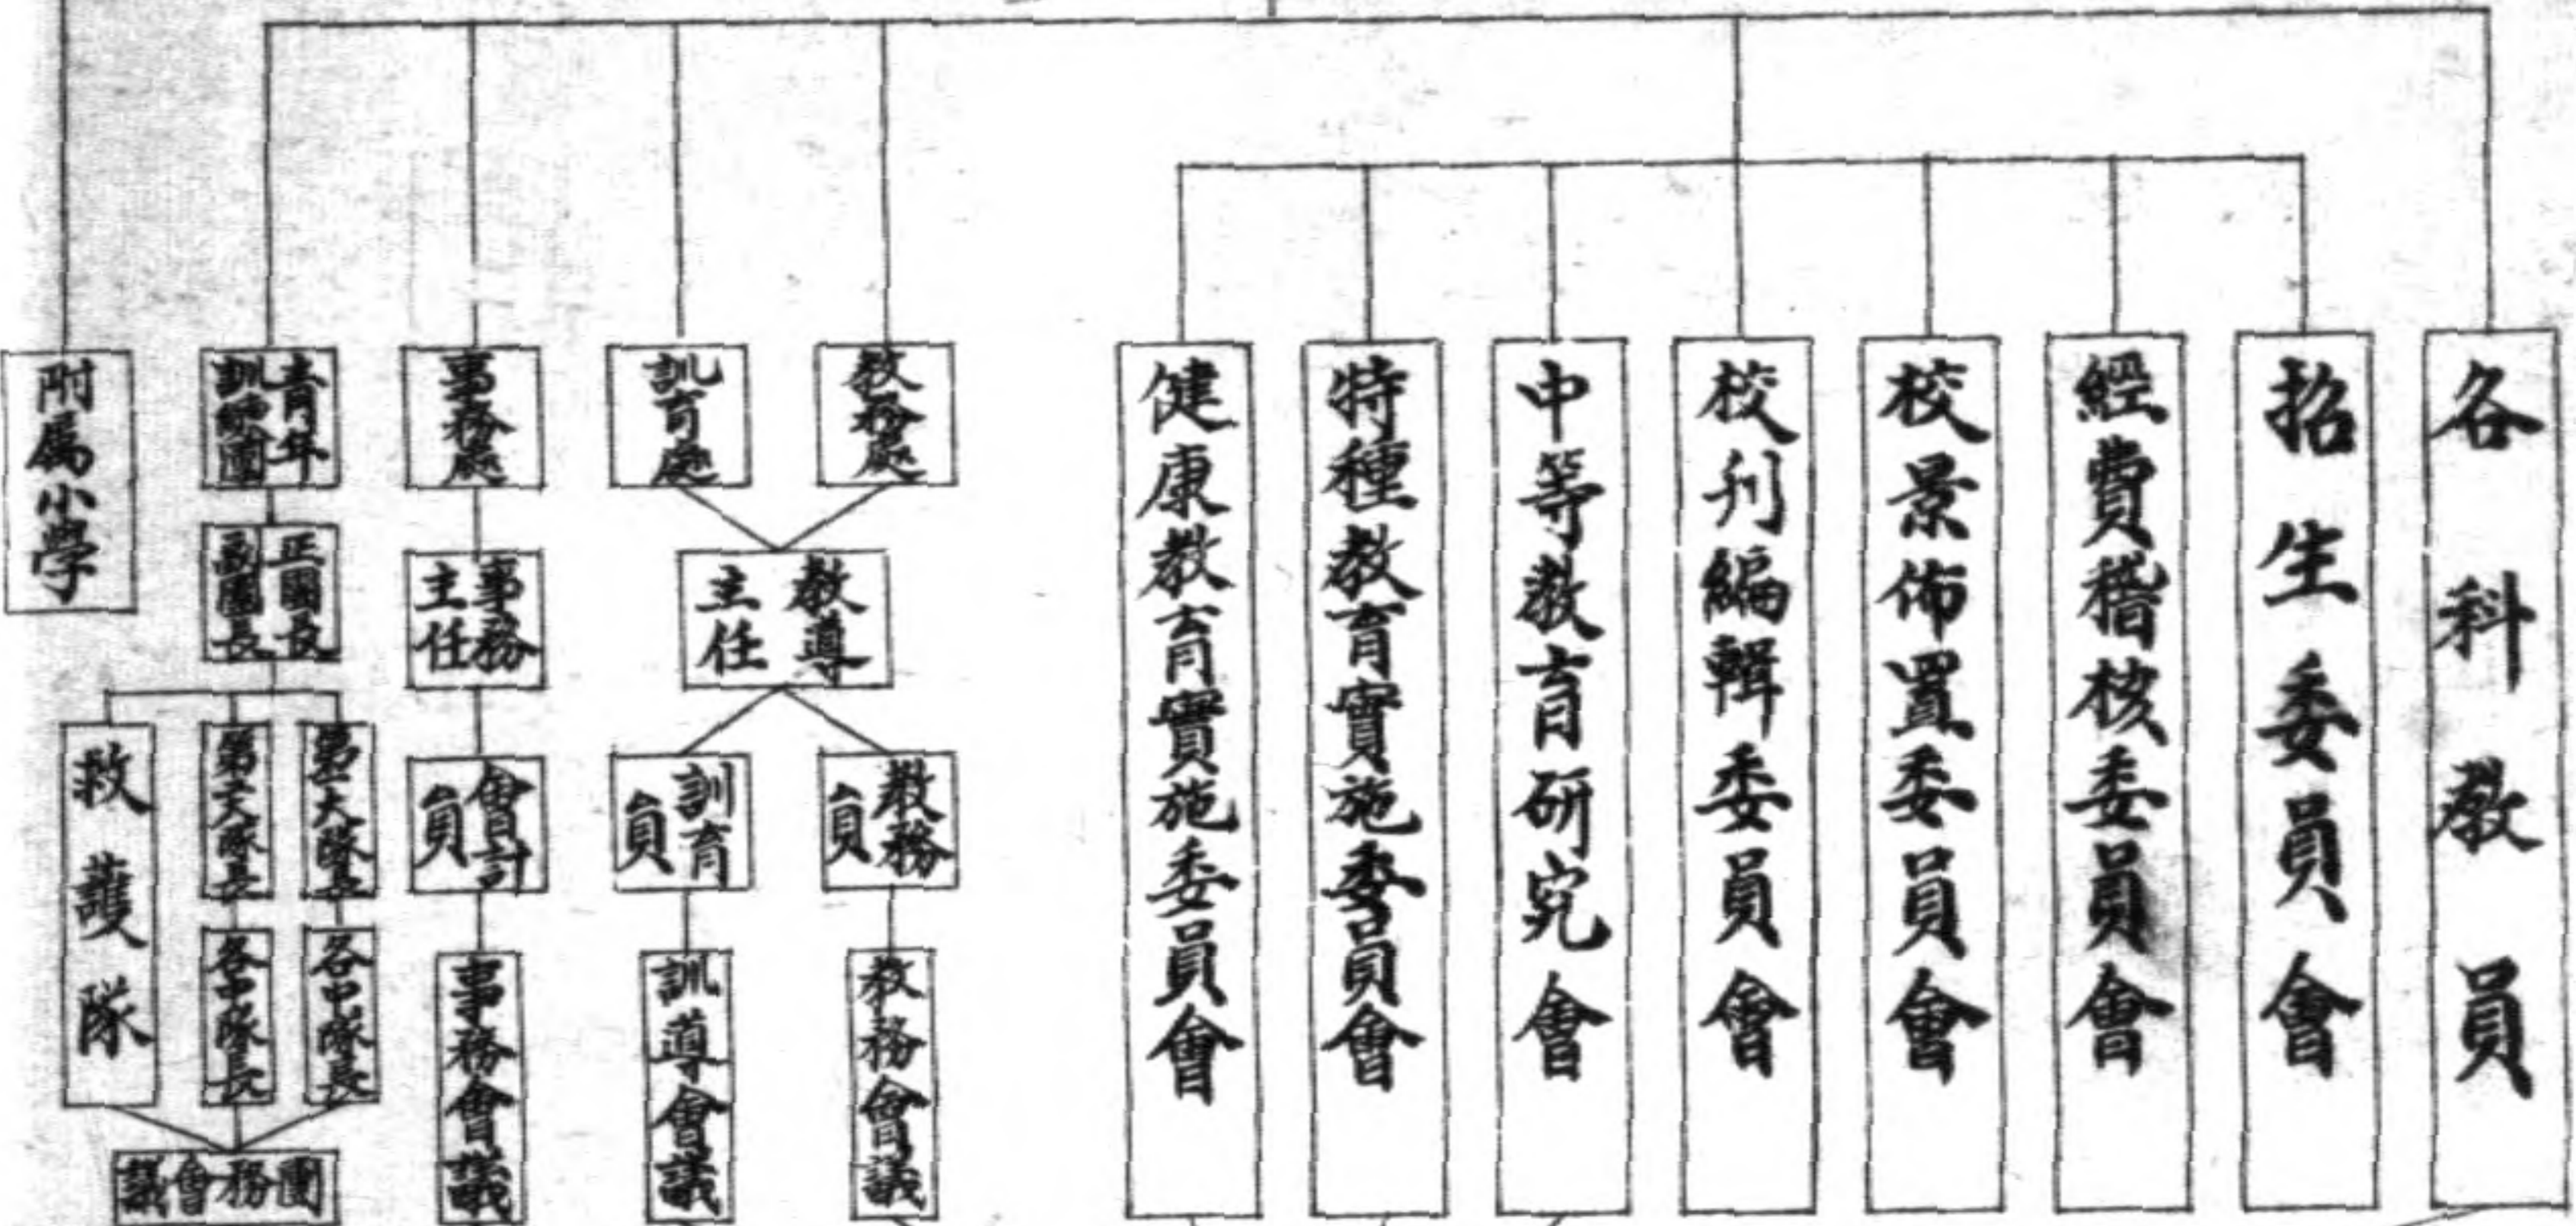 各科教員
招生委員會
經費稽核委員會
校景佈置委員會
校刊編輯委員會
中等教育研究會
特種教育實施委員會
健康教育實施委員會
教務處
訓育處
教導
主任
教務
員
訓育
員
教務會議
訓導會議
事務處
事務
主任
會計
員
事務會議
青年
訓練團
正團長
副團長
第一大隊長
第二大隊長
各中隊長
各中隊長
救護隊
團務會議
附属小學